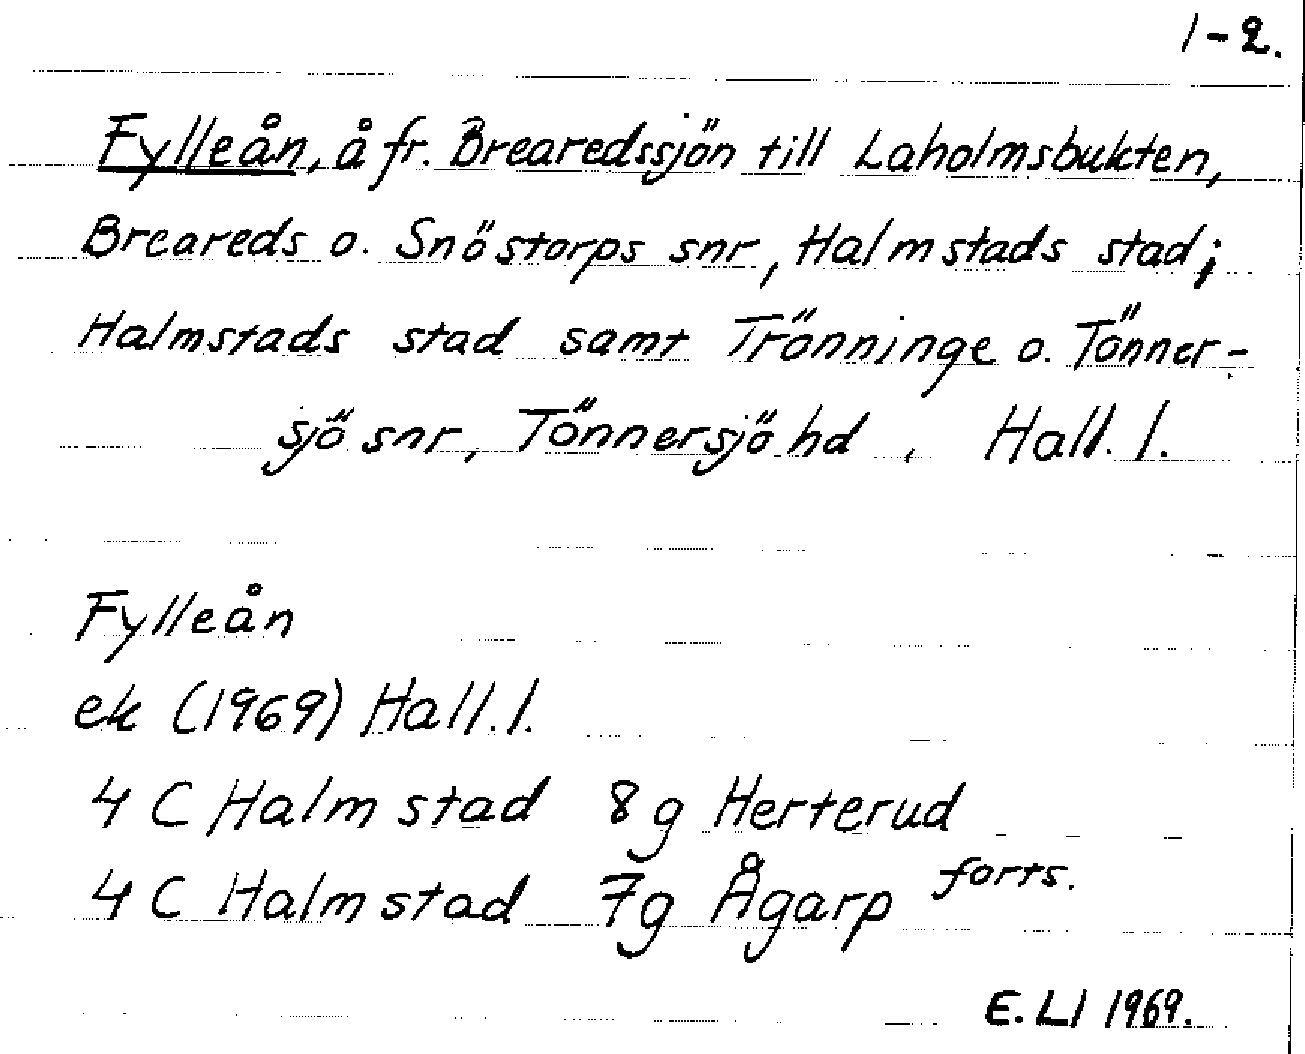 1-2.
Fylleån, å fr. Brearedssjön till Laholmsbukten,
Breareds o. Snöstorps snr, Halmstads stad;
Halmstads stad samt Trönninge o. Tönner-
sjö snr, Tönnersjö hd, Hall. l.
Fylleån
ek (1969) Hall. l.
4 C Halmstad 8g Herterud
4 C Halmstad 7g Ågarp forts.
E. Ll 1969.